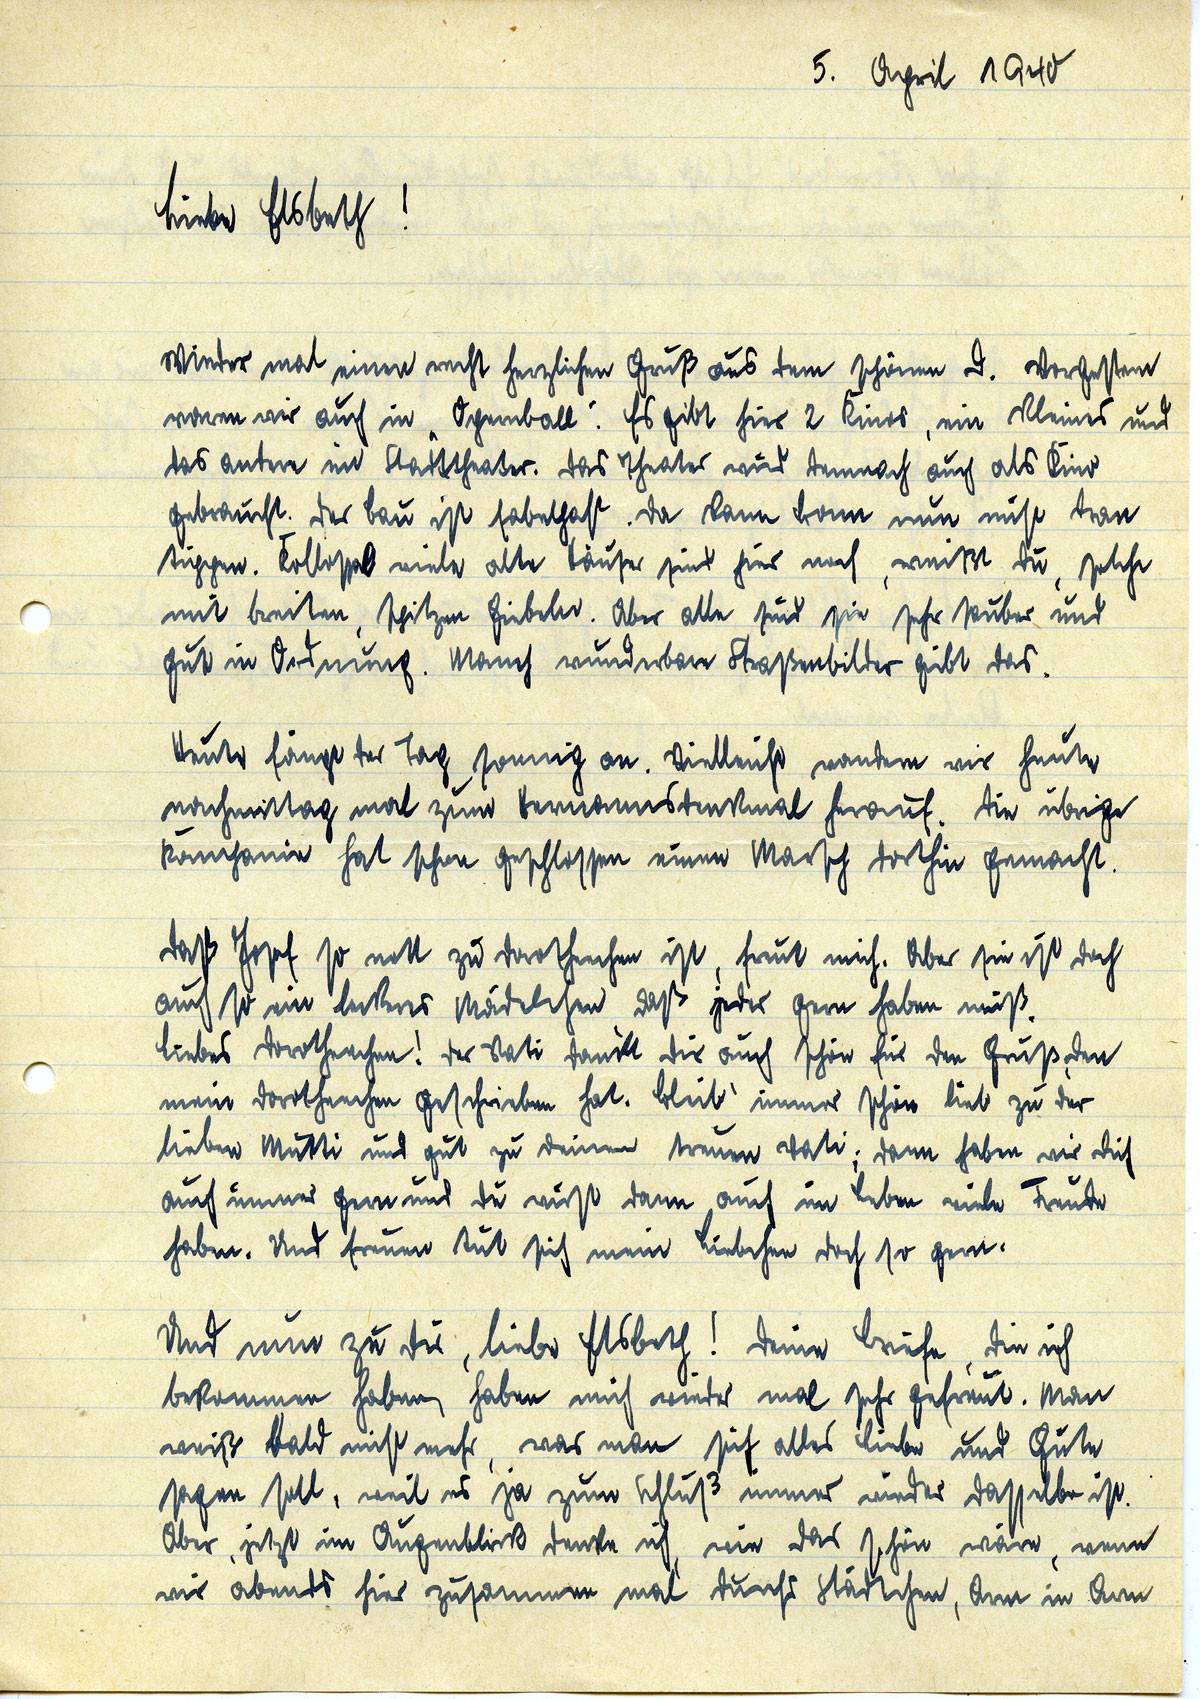 5. April 1940
Liebe Elsbeth!
Wieder mal einen recht herzlichen Gruß aus dem schönen D. Vorgestern
waren wir auch in „Opernball". Es gibt hier 2 Kinos, ein kleines und
das andere im Stadttheater. Das Theater wird demnach auch als Kino
gebraucht. Der Bau ist fabelhaft. Da kann Bonn nun nicht dran
tippen. Kollossal viele alte Häuser sind hier noch, weißt Du, solche
mit breiten, spitzen Giebeln. Aber alle sind sie sehr sauber und
gut in Ordnung. Manch wunderbare Straßenbilder gibt das.
Heute fängt der Tag sonnig an. Vielleicht wandern wir heute
nachmittag mal zum Hermannsdenkmal herauf. Die übrige
Kompanie hat schon geschlossen einen Marsch dorthin gemacht.
Daß Josef so nett zu Dorotheechen ist, freut mich. Aber sie ist doch
auch so ein leckeres Mädelchen daß jeder gern haben muß.
Liebes Dorotheechen! Der Vati dankt Dir auch schön für den Gruß, den
mein Dorotheechen geschrieben hat. Bleib' immer schön lieb zu der
lieben Mutti und gut zu Deinem treuen Vati; dann haben wir Dich
auch immer gern und Du wirst dann auch im Leben viele Freude
haben. Und freuen tut sich mein Liebchen doch so gern.
Und nun zu Dir, liebe Elsbeth! Deine Briefe, die ich
bekommen haben, haben mich wieder mal sehr gefreut. Man
weiß bald nicht mehr, was man sich alles Liebe und Gute
sagen soll, weil es ja zum Schluß immer wieder dasselbe ist.
Aber, jetzt im Augenblick denke ich, wie das schön wäre, wenn
wir abends hier zusammen mal durchs Städtchen, Arm in Arm